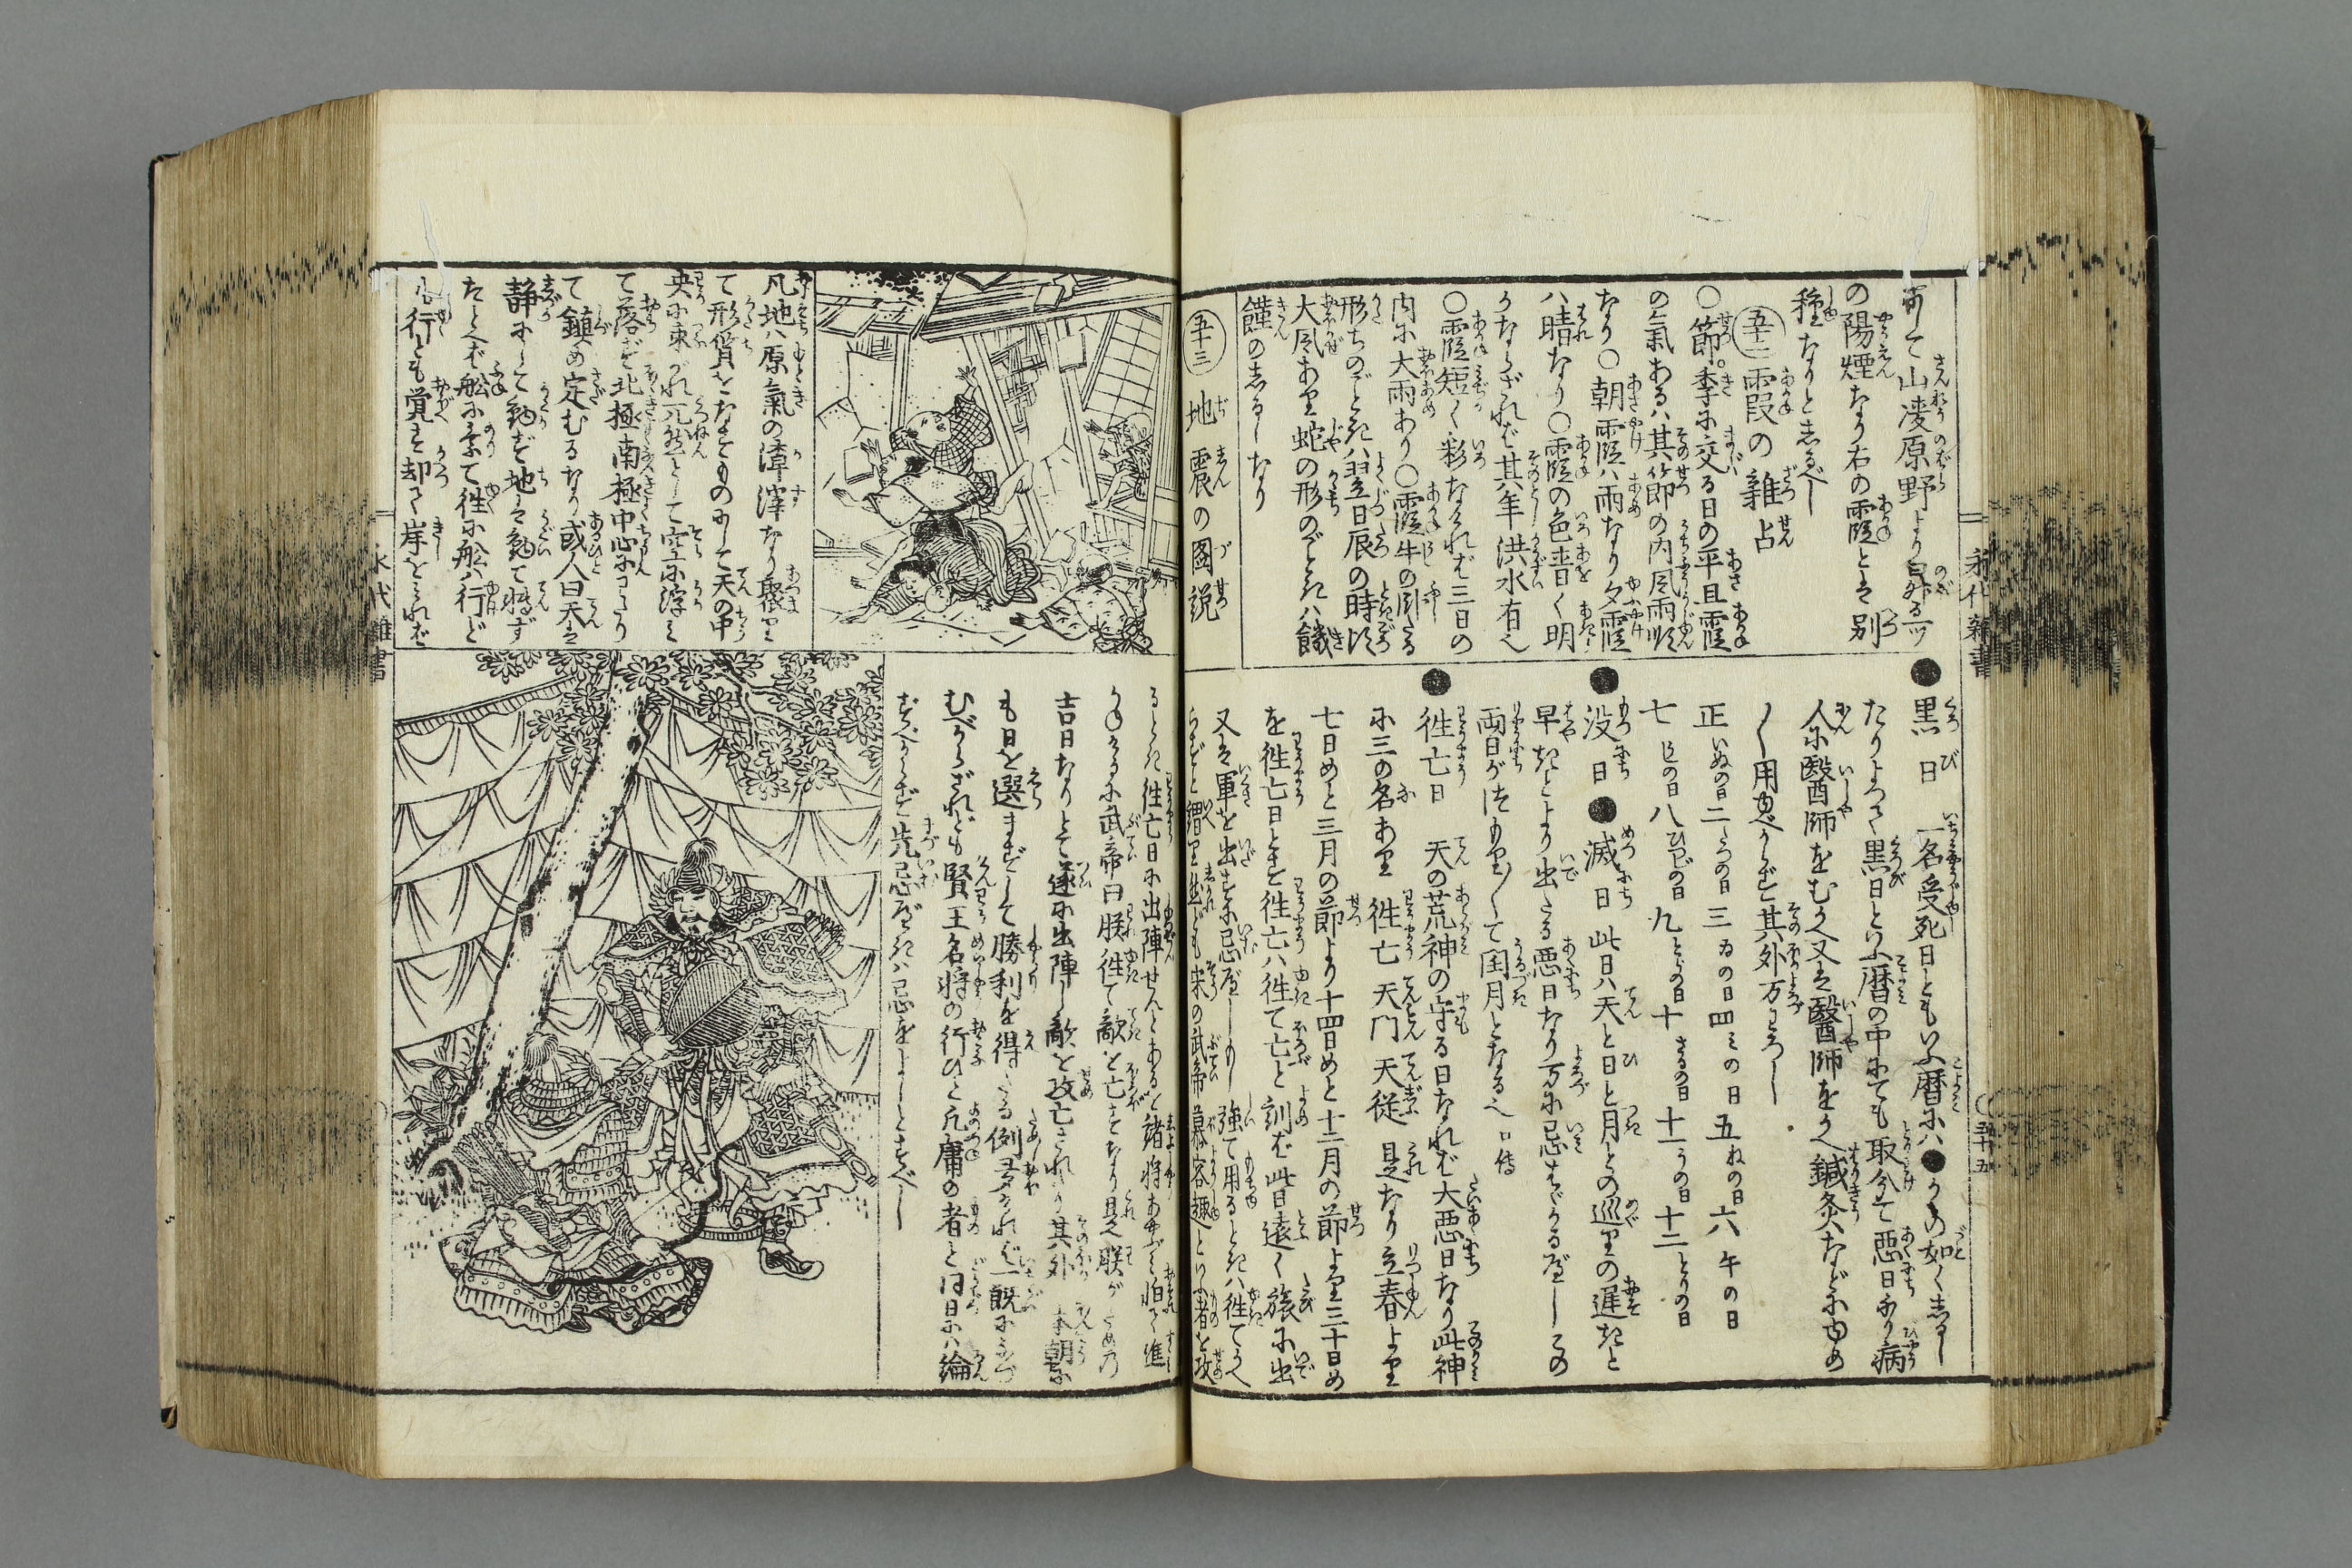 にて山凌原野より昇る一ツ
の陽煙なり右の霞とは別
種なりとしるべし
五十二 霞の雑占
〇節季に交る日の平旦霞
の氣あるハ其節の内風雨順
なり〇朝霞ハ雨なり夕霞
ハ晴なり〇霞の色青く明
かならざれば其年洪水有べし
〇霞短く彩なければ三日の
内に大雨あり〇霞牛の
形ちのごときハ翌日辰の時頃
大風あり蛇の形のごときハ饑
饉のしるしなり
五十三 地震の圖説
●黒日 一名受死日ともいふ暦にハ●かくの如くしるし
たりよつて黒日といふ暦の中にても取分て悪日なり病
人に醫師をむかへ又は醫師をかへ鍼灸などに由め
用ゆべからず其外万わろし
正いぬの日二たつの日三ゐの日四ミの日五ねの日六午の日
七うしの日八ひつじの日九とらの日十さるの日十一うの日十二とりの日
●没日●滅日 此日ハ天と日と月との巡りの遅きと
早きとより出たる悪日なり万に忌はゞかるべしこの
両日がつもりつもりて閏月となる也口傳
●徃亡日 天の荒神の守る日なれば大悪日なり此神
に三の名あり 徃亡 天門 天従 是なり立春より
七日めと三月の節より十四日めと十二月の節より三十日め
を徃亡日とす徃亡ハ徃て亡と訓ば此日遠く旅に出
又は軍を出すに忌べしもし強て用るときハ徃てかへ
らずと謂り然ども宋の武帝慕容超といふ者を攻
るとき徃亡日に出陣せんとあるを諸将あやぶミ怕て進
かねけるに武帝曰朕徃て敵を亡すなり是朕がための
吉日なりとて遂に出陣し敵を攻亡されり其外本朝に
も日を選まずして勝利を得たる例多ければ一既に
むべからざれども賢王名将の行ひと凡庸の者と同日にハ論
ずべからず先忌べきハ忌をよしとすべし
凡地ハ原氣の渣滓なり聚り
て形質をなすものにして天の中
央に束がれ兀然として空に浮ミ
て落ず北極南極中心にわたり
て鎮め定むるなり或人曰天は
静にして動ず地は動て轉ず
たとへば舩に乗て徃に舩ハ行ど
行とも覚ず却て岸をミれば
永代雑書
永代雑書
五十五